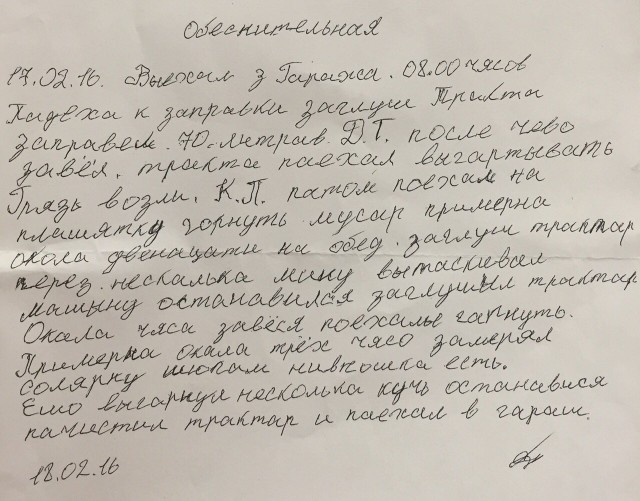 Обеснительная
17.02.16. Выехал з Гаража. 08.00 часов
Падеха к заправки заглуш Тракта
заправем. 70-литрав. Д.Т. после чево
завёл. тракта паехал выгартывать
Грязь возли. К.П. патом поехал на
плашятку горнуть мусар примерна
окола двенацати на обед. заглуш трактар
через. нескалька мину вытаскивал
машыну останавился заглушил трактар
Окала часа завёся поехалье гапнуть.
Примерна окала трёх часо замерял
солярку шюпам нивпошка есть.
Ешо выгарнул несколька кучь останавися
пачистил трактар и паехал в гараш.
18.02.16